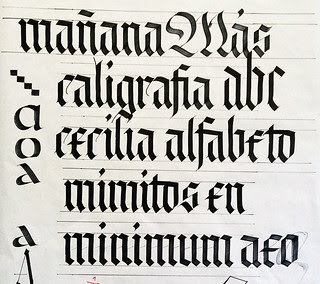 mañana Más
caligrafia abc
a
cecilia alfabeto
o
a
mimitos en
a
minimum aeo